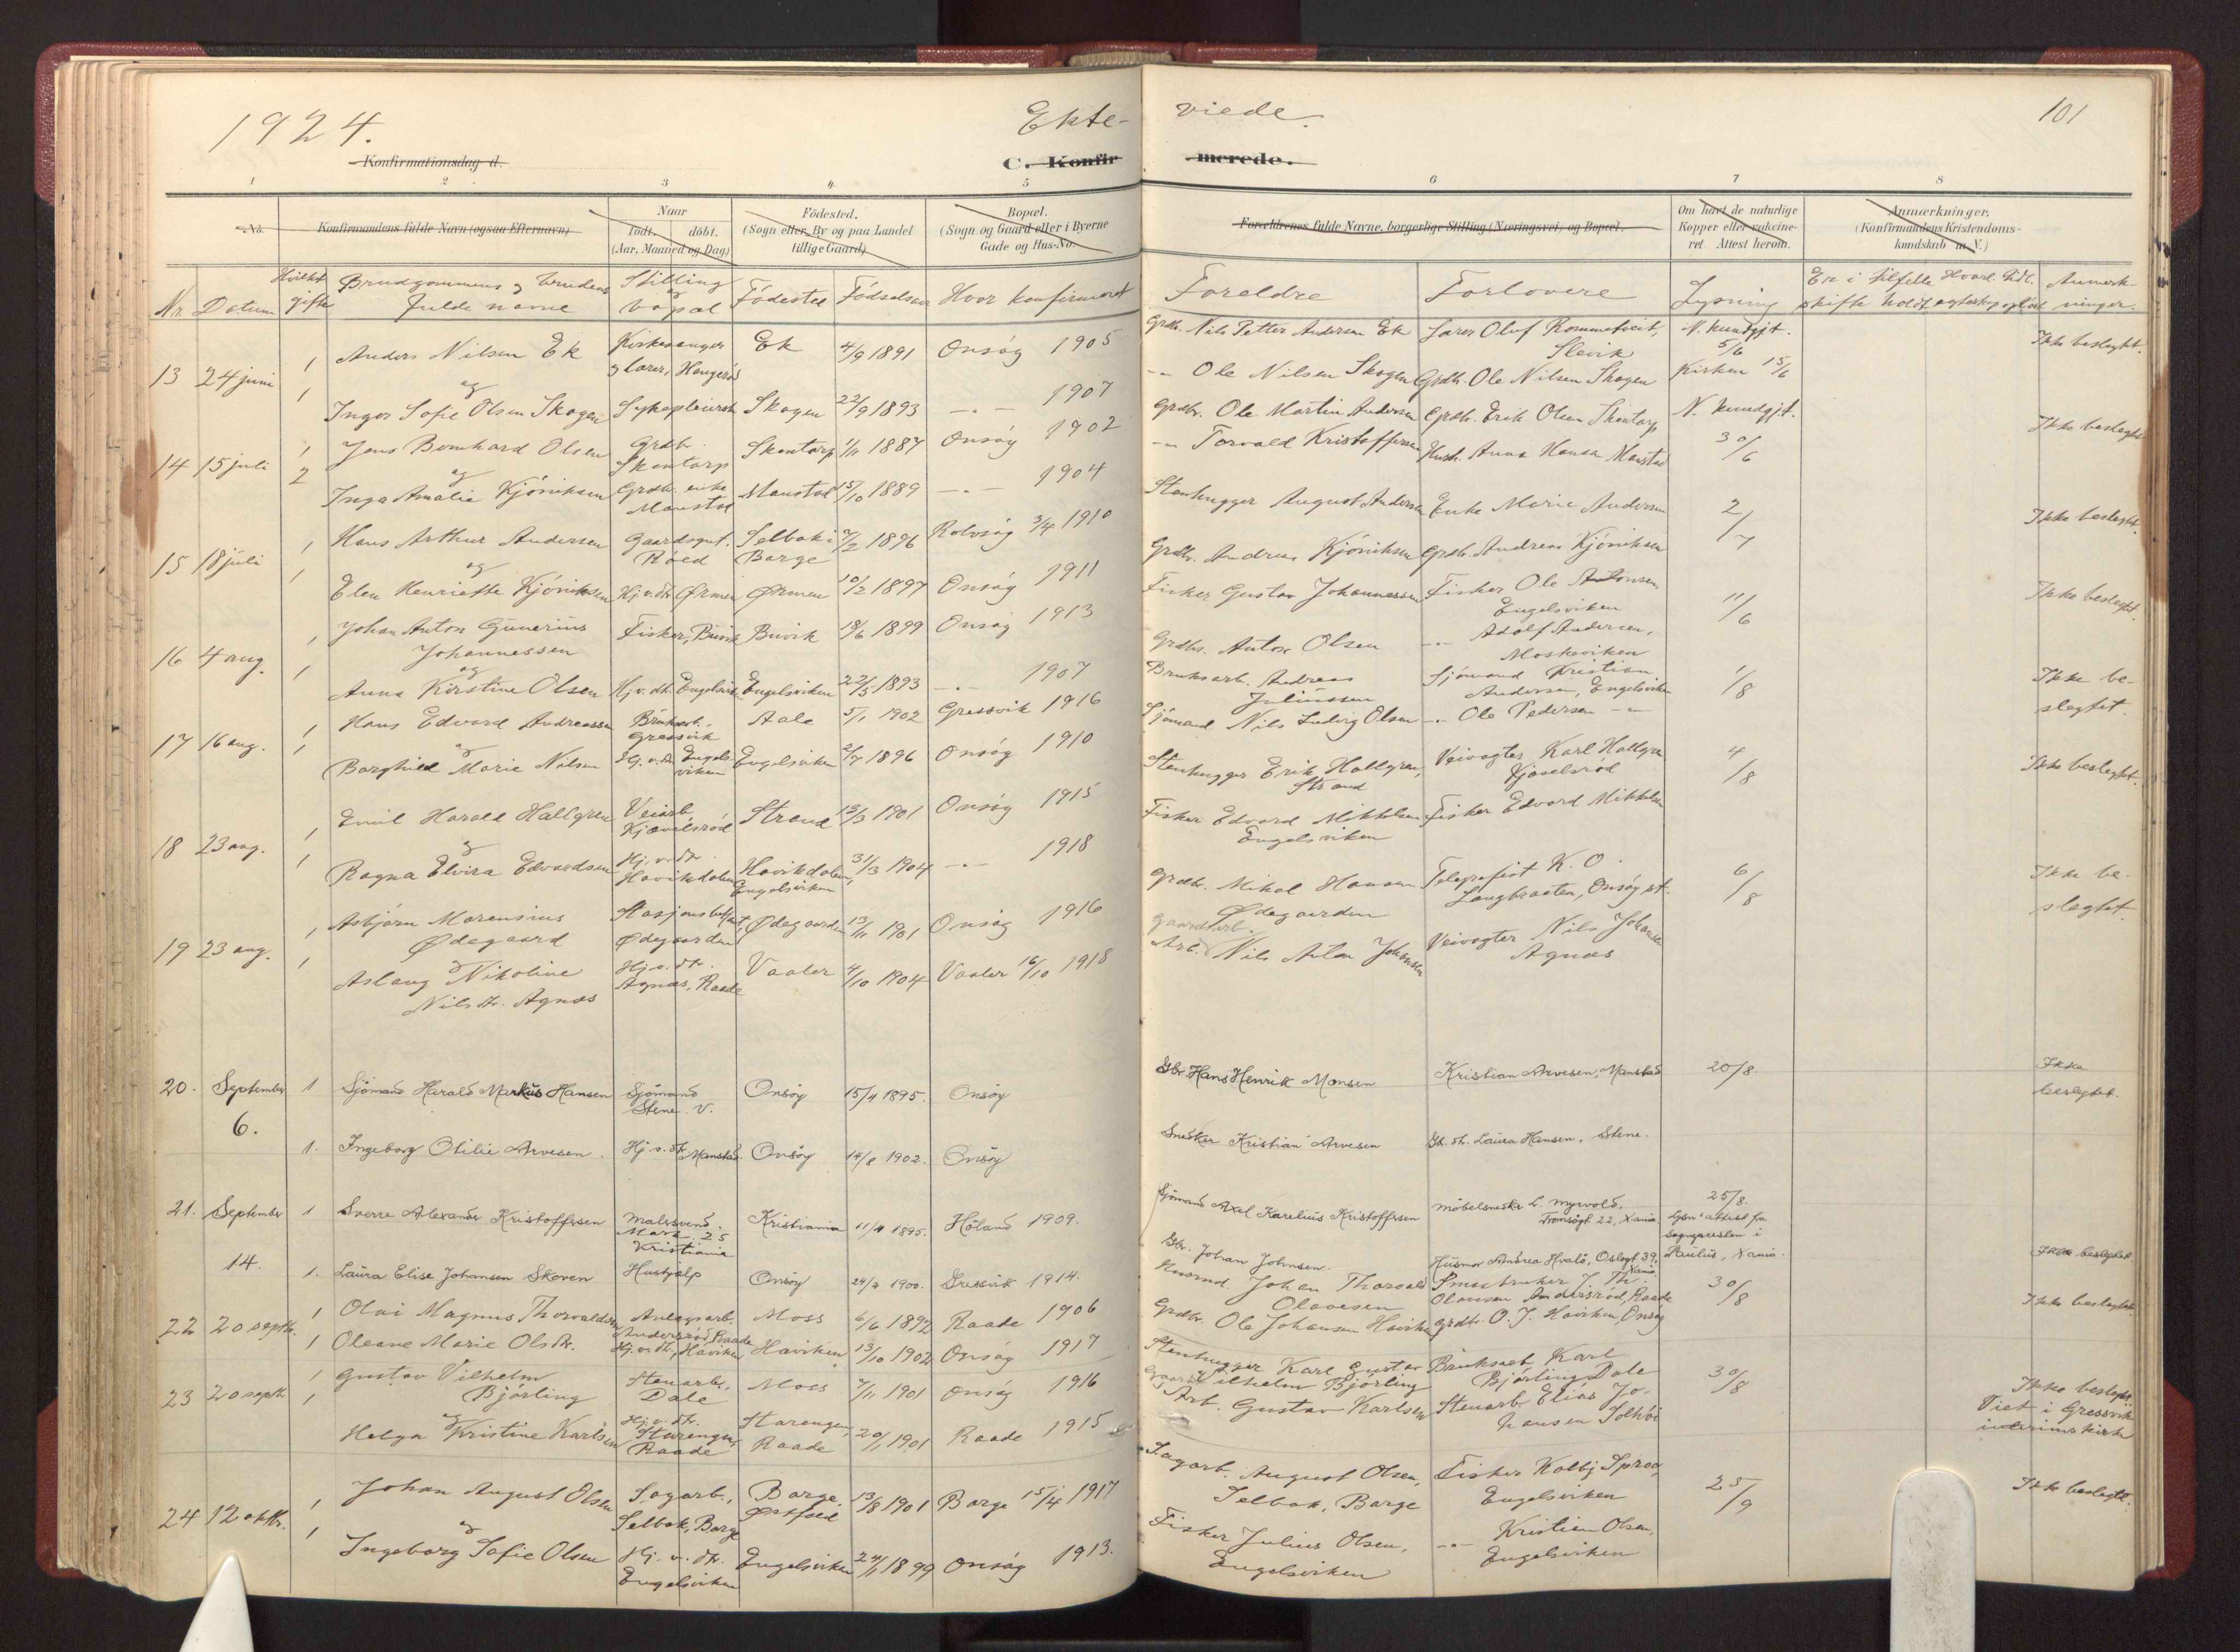 1924. Ekte- viede. 101
Konfirmationsdag d. C. Konfir merede.
1 2 3 4 5 6 7 8
No. Konfirmandens fulde Navn (ogsaa Efternavn) Naar født. døbt. (Aar, Maaned og Dag) Fødested. (Sogn eller By og paa Landet tillige Gaard) Bopæl. (Sogn og Gaard eller i Byerne Gade og Hus-No. Forældrenes fulde Navne, borgerlige Stilling (Næringsvei) og Bopæl. Om havt de naturlige Kopper eller vakcineret. Attest herom. Anmærkninger. (Konfirmandens Kristendomskundskab m. V.)
Nr. Datum Hvilket gifte Brudgommens og brudens fulde navne Stilling og bopæl Fødested Fødselsaar Hvor konfirmeret Foreldre Forlovere Lysning Er i tilfelle skifte holdt Anmerkninger.
13 24 juni 1 Anders Nilsen Ek Kirkesanger og lærer, Haugerød Ek 4/9 1891 Onsøy 1905 Grdbr. Nils Petter Andersen Ek Lærer Olof Rommetveit, Slevik N. kundgjt. 5/6 Ikke beslegtet.
og
1 Inger Sofie Olsen Skogen Sykepleierske Skogen 22/9 1893 -"- 1907 -"- Ole Nilsen Skogen Grdbr. Ole Nilsen Skogen Kirken 15/6
14 15 juli 1 Jens Bernhard Olsen Grdbr. Skontorp Skontorp 1/11 1887 Onsøy 1902 Grdbr. Ole Martin Andersen Grdbr. Erik Olsen Skontorp N. kundgjt. 30/6 Ikke beslegtet
og
2 Inga Amalie Kjøniksen Grdbr. enke Manstad Manstad 15/10 1889 -"- 1904 -"- Torvald Kristoffersen Husm. Anna Hansen Manstad
15 18 juli 1 Hans Arthur Andersen Gaardsgut. Røed Selbak i Borge 7/2 1896 Rolvsøy 3/4 1910 Stenhugger August Andersen Enke Marie Andersen 2/7 Ikke beslegtet.
og
1 Elen Henriette Kjøniksen Hj.v.dtr. Ørmen Ørmen 10/2 1897 Onsøy 1911 Grdbr. Andreas Kjøniksen Grdbr. Andreas Kjøniksen
16 4 aug. 1 Johan Anton Gunerius Johannessen Fisker, Buvik Buvik 18/6 1899 Onsøy 1913 Fisker Gustav Johannessen Fisker Ole Antonsen, Engelsviken 11/6 Ikke beslegtet.
og
1 Anna Kirstine Olsen Hj.v.dtr. Engelsvik Engelsviken 22/5 1893 -"- 1907 Grdbr. Anton Olsen -"- Adolf Andersen, Moskeviken
17 16 aug. 1 Hans Edvard Andreassen Bruksarb. Gressvik Aale 5/1 1902 Gressvik 1916 Bruksarb. Andreas Juliussen Sjømand Kristian Andersen, Engelsviken 1/8 Ikke beslegtet.
og
1 Borghild Marie Nilsen Hj.v.dtr. Engelsviken Engelsviken 2/7 1896 Onsøy 1910 Sjømand Nils Ludvig Olsen -"- Ole Pedersen -"-
18 23 aug. 1 Emil Harald Hallgren Veiarb. Kjæselsrød Strand 13/3 1901 Onsøy 1915 Stenhugger Erik Hallgren, Strand Veivogter Karl Hallgren Kjæselsrød 4/8 Ikke beslegtet.
og
1 Ragna Elvira Edvardsen Hj.v.dtr. Havikdalen Havikdalen, Engelsviken 31/3 1904 -"- 1918 Fisker Edvard Mikkelsen Engelsviken Fisker Edvard Mikkelsen
19 23 aug. 1 Asbjørn Marensius Ødegaard Stasjonsbetjent, Ødegaarden Ødegaarden 13/11 1901 Onsøy 1916 Grdbr. Mikal Hansen Ødegaarden Telegrafist K. O. Langbraaten, Onsøy st. 6/8 Ikke beslegtet.
og
1 Aslaug Nikoline Nilsdtr. Agnæs Hj.v.dtr. Agnæs, Raade Vaaler 4/10 1904 Vaaler 16/10 1918 Gaardarb. Arb. Nils Anton Johansen Veivogter Nils Johansen Agnæs
20. September 6. 1 Sjømand Harald Markus Hansen Sjømand Stene. V. Onsøy 15/4 1895. Onsøy Gbr. Hans Henrik Monsen Kristian Arvesen, Manstad 20/8 Ikke beslegtet.
1. Ingeborg Otilie Arvesen. Hj.v.dtr. Manstad. Onsøy 14/8 1902. Onsøy Snekker Kristian Arvesen Gb. dt. Laura Hansen, Stene.
21. September 14. 1 Sverre Alexander Kristoffersen Malersvend. Mark. 25 Kristiania Kristiania 11/4 1895. Høland 1909. Sjømand Axel Karelius Kristoffersen Møbelsnekker L. Myrvold, Tromsøgt. 22, Xania 25/8. Lysn.attest fra sognepresten i Paulus, Xania.
1. Laura Elise Johansen Skoven Hushjelp Onsøy 24/2 1900. Gressvik 1914. Gbr. Johan Johnsen. Husmor Andrea Hvalø, Oslogt. 39, Xania. Ikke beslegtet.
22 20 septbr. 1 Olai Magnus Thorvaldsen Anlegsarb. Andersrød, Raade Moss 6/6 1892 Raade 1906 Husmd. Johan Thorvald Olavesen Smaabruker J. Th. Olavesen Andersrød, Raade 30/8 Ikke beslegtet
1 Oleane Marie Olsdtr. Hj.v.dtr., Haviken Haviken 13/10 1902 Onsøy 1917 Grdbr. Ole Johansen Haviken Grdbr. O. J. Haviken, Onsøy
23 20 septb 1 Gustav Vilhelm Bjørling Stenarb., Dale Moss 7/11 1901 Onsøy 1916 Stenhugger Karl Gustav Vilhelm Bjørling Bruksarb. Karl Bjørling Dale 30/8 Ikke beslegtet. Viet i Gressvik interimskirke
og
1 Helga Kristine Karlsen Hj.v.dtr. Starengen, Raade Starengen, Raade 20/1 1901 Raade 1915 Gaard Arb. Gustav Karlsen Stenarb. Elias Johansen Solhøi
24 12 oktbr. 1 Johan August Olsen Sagarb., Selbak, Borge Borge, Østfold 13/8 1901 Borge 15/4 1917 Sagarb. August Olsen, Selbak, Borge Fisker Kolbj. Sproa, Engelsviken 25/9 Ikke beslegtet.
og
1 Ingeborg Sofie Olsen Hj.v.dtr. Engelsviken Engelsviken 24/1 1899 Onsøy 1913. Fisker Julius Olsen, Engelsviken -"- Kristian Olsen, Engelsviken